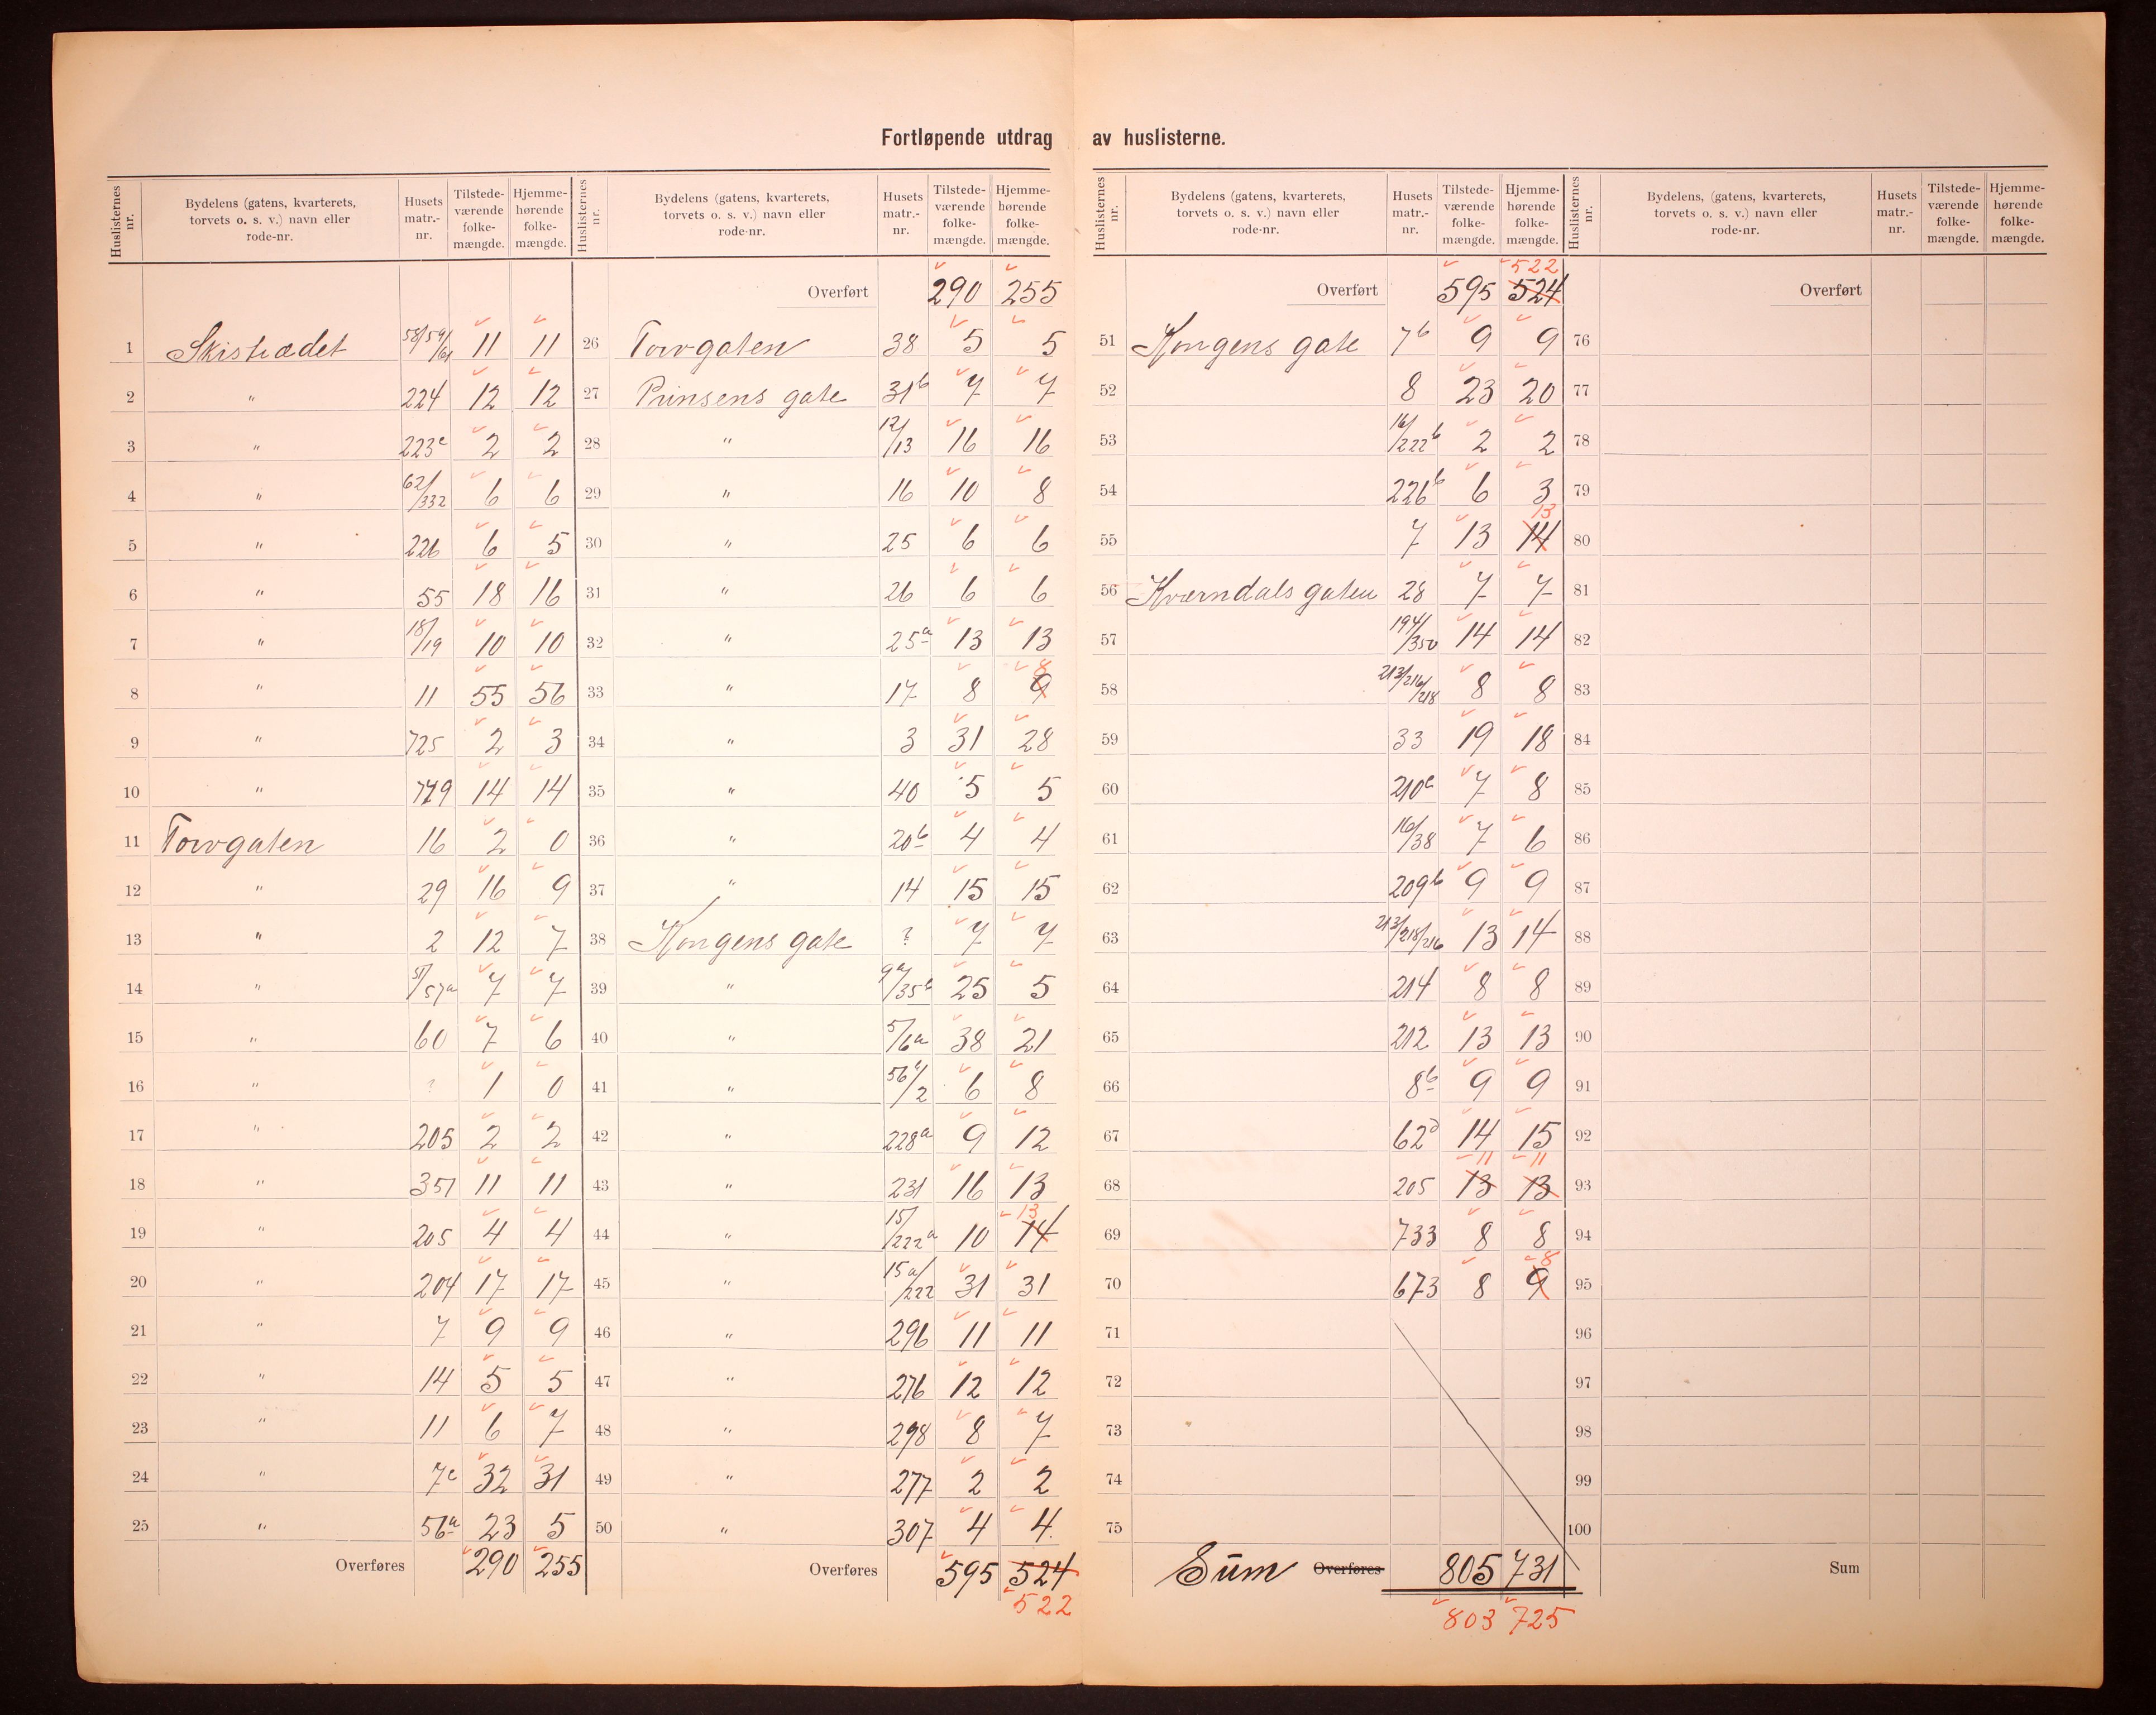 Fortløpende utdrag av huslisterne.
Huslisternes nr. | Bydelens (gatens, kvarterets, torvets o. s. v.) navn eller rode-nr. | Husets matr.-nr. | Tilstede-værende folke-mængde. | Hjemme-hørende folke-mængde.
1 Skistrædet 58/59/61 11 11
2 " 224 12 12
3 " 223c 2 2
4 " 62/332 6 6
5 " 226 6 5
6 " 55 18 16
7 " 18/19 10 10
8 " 11 55 56
9 " 725 2 3
10 " 779 14 14
11 Torvgaten 16 2 0
12 " 29 16 9
13 " 2 12 7
14 " 51/57a 7 7
15 " 60 7 6
16 " ? 1 0
17 " 205 2 2
18 " 351 11 11
19 " 205 4 4
20 " 204 17 17
21 " 7 9 9
22 " 14 5 5
23 " 11 6 7
24 " 7c 32 31
25 " 56a 23 5
Overføres 290 255
Huslisternes nr. | Bydelens (gatens, kvarterets, torvets o. s. v.) navn eller rode-nr. | Husets matr.-nr. | Tilstede-værende folke-mængde. | Hjemme-hørende folke-mængde.
Overført 290 255
26 Torvgaten 38 5 5
27 Prinsens gate 31b 7 7
28 " 12/13 16 16
29 " 16 10 8
30 " 25 6 6
31 " 26 6 6
32 " 25a 13 13
33 " 17 8 9 8
34 " 3 31 28
35 " 40 5 5
36 " 20b 4 4
37 " 14 15 15
38 Kongens gate ? 7 7
39 " 9a/35b 25 5
40 " 5/6a 38 21
41 " 56c/2 6 8
42 " 228a 9 12
43 " 231 16 13
44 " 15/222a 10 14 13
45 " 15a/222 31 31
46 " 296 11 11
47 " 276 12 12
48 " 298 8 7
49 " 277 2 2
50 " 307 4 4.
Overføres 595 524
522
Huslisternes nr. | Bydelens (gatens, kvarterets, torvets o. s. v.) navn eller rode-nr. | Husets matr.-nr. | Tilstede-værende folke-mængde. | Hjemme-hørende folke-mængde.
522
Overført 595 524
51 Kongens gate 7b 9 9
52 8 23 20
53 16/222b 2 2
54 226b 6 3
55 7 13 14 13
56 Kværndalsgaten 28 7 7
57 194/350 14 14
58 213/216/218 8 8
59 33 19 18
60 210c 7 8
61 16/38 7 6
62 209b 9 9
63 213/218/216 13 14
64 214 8 8
65 212 13 13
66 8b 9 9
67 62d 14 15
68 205 13 11 13 11
69 733 8 8
70 673 8 9 8
71
72
73
74
75
Sum Overføres 805 731
803 725
Huslisternes nr. | Bydelens, (gatens, kvarterets, torvets o. s. v.) navn eller rode-nr. | Husets matr.-nr. | Tilstede-værende folke-mængde. | Hjemme-hørende folke-mængde.
Overført
76
77
78
79
80
81
82
83
84
85
86
87
88
89
90
91
92
93
94
95
96
97
98
99
100
Sum